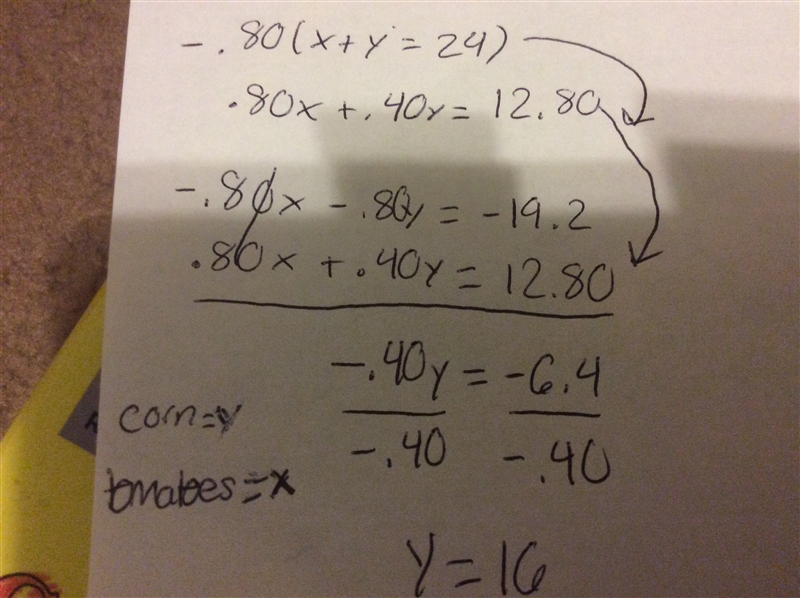 -.80(x+y=24)
.80x+.40y=12.80
-.80x -.80y=-19.2
.80x +.40y=12.80
-.40y=-6.4
-.40 -.40
corn=y
tomatoes=x
y=16